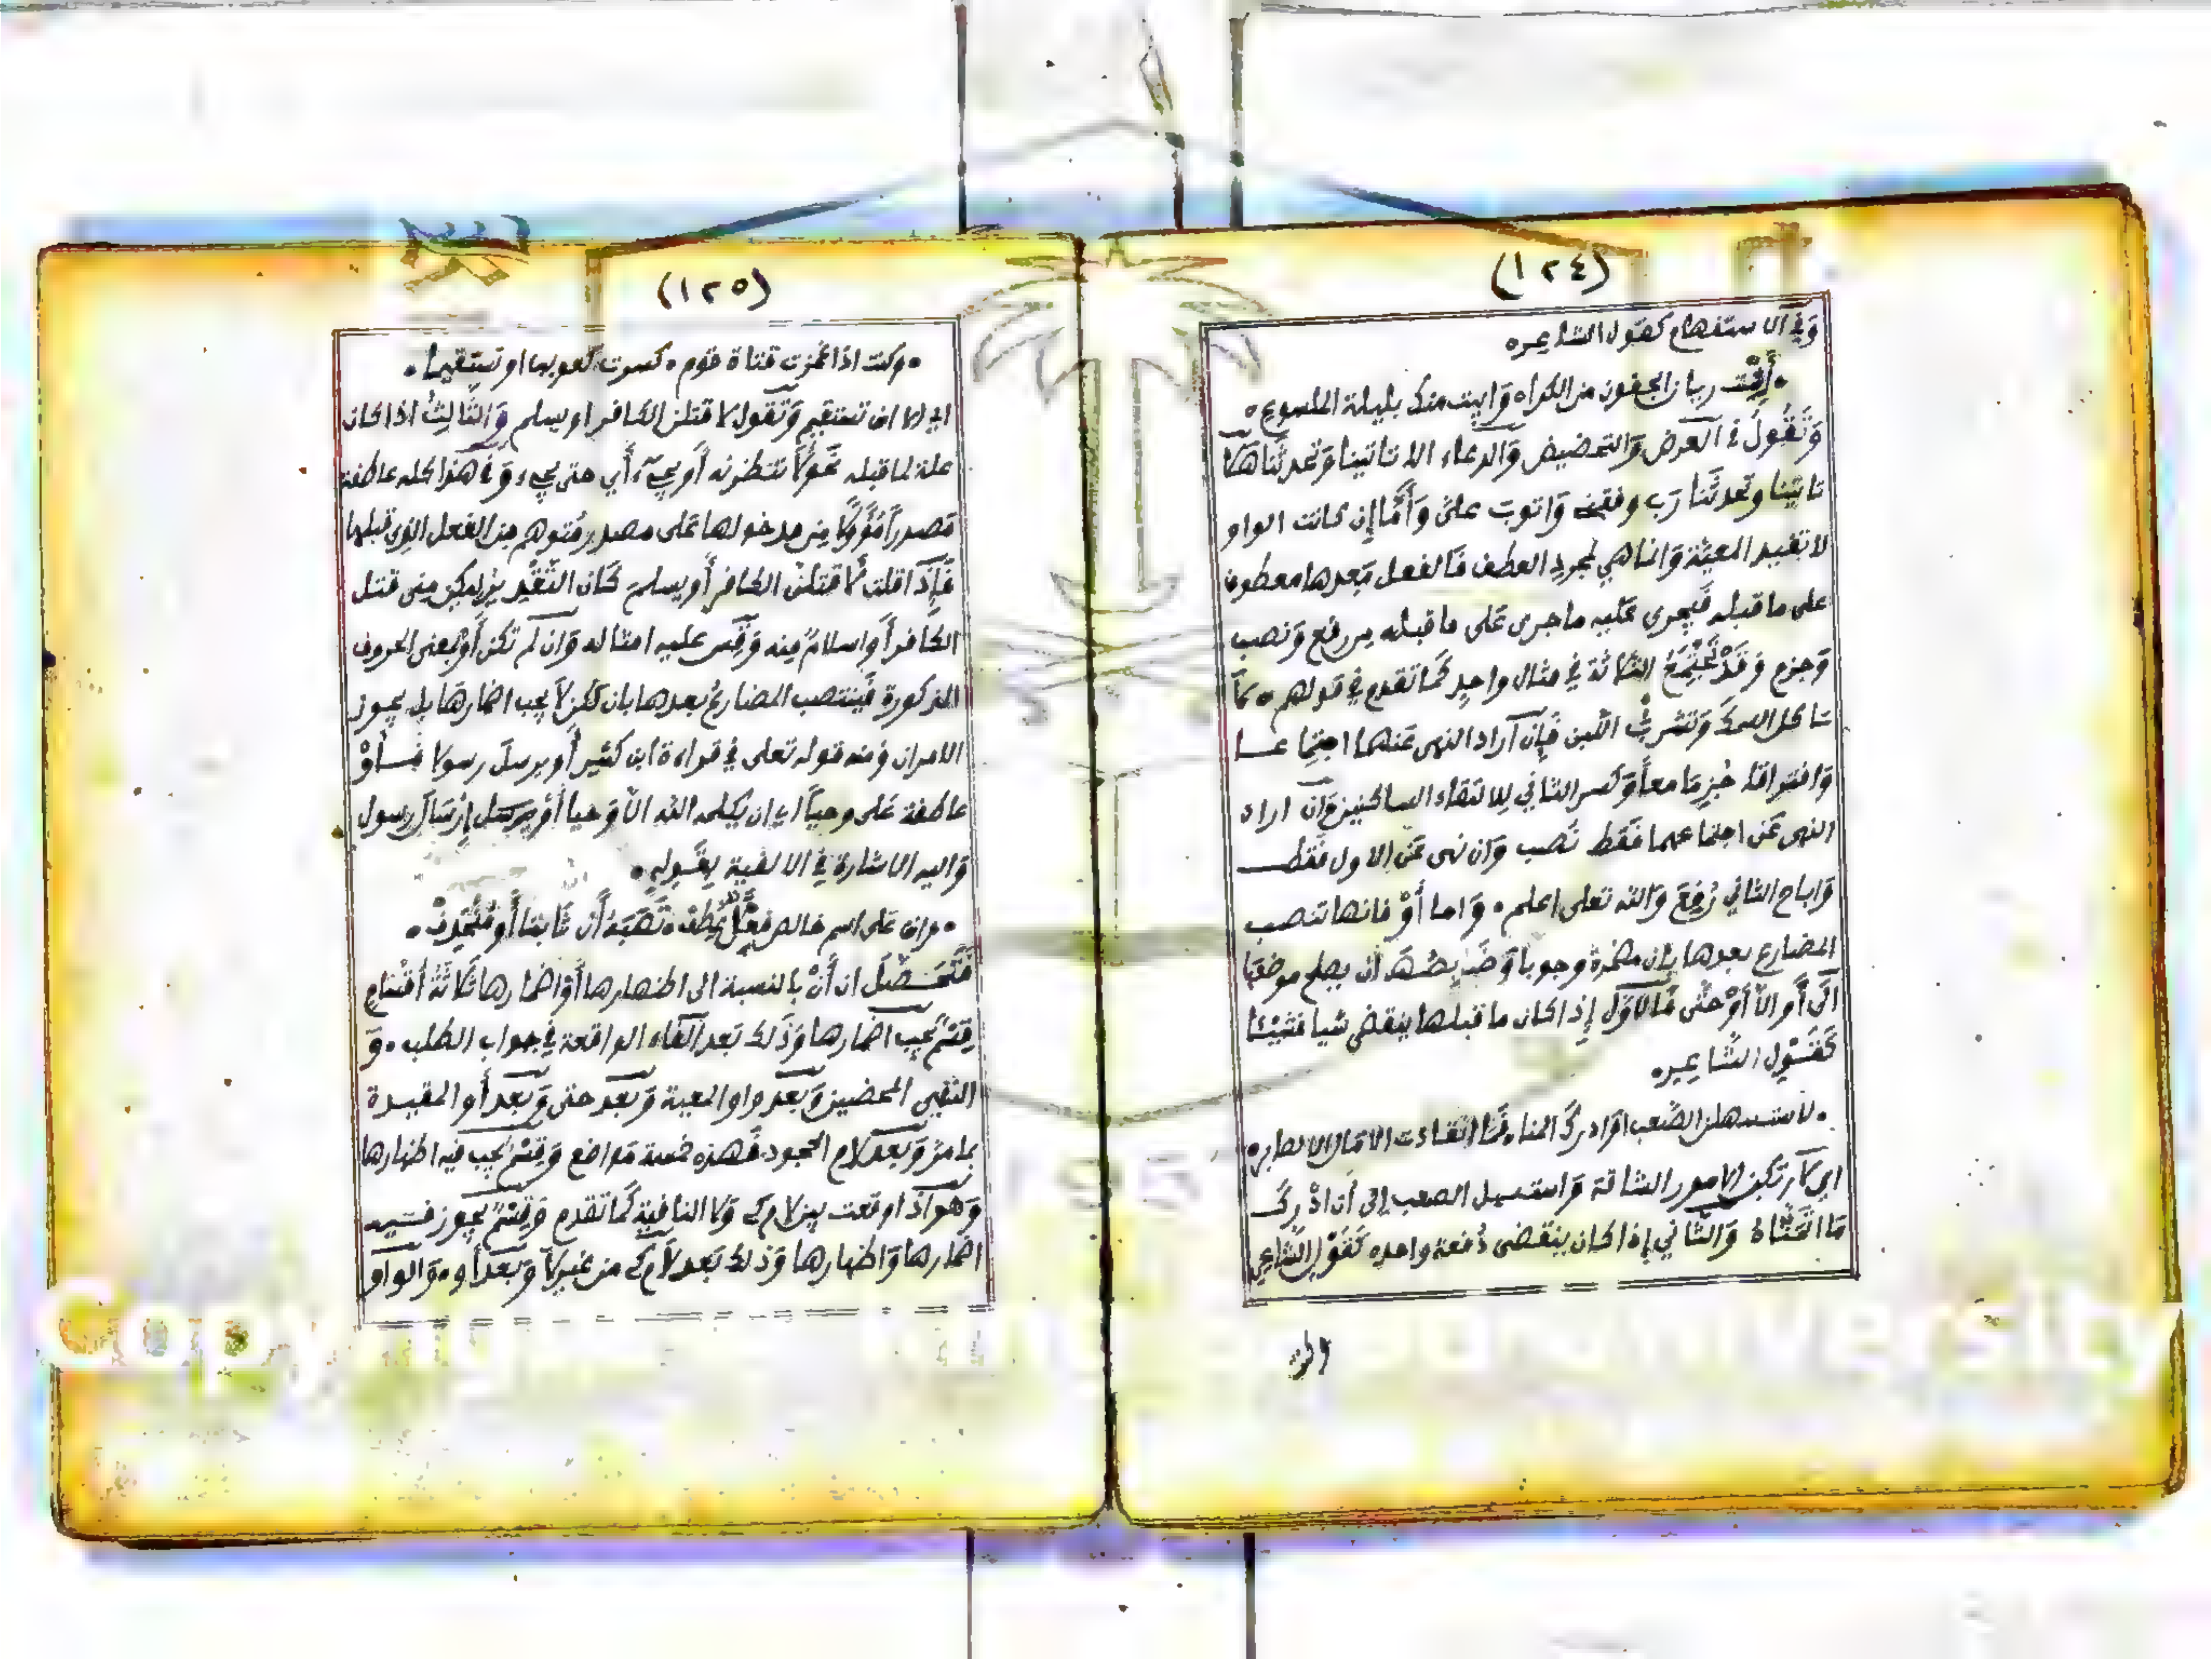 (١٢٤)
وَفِي الاستفهام كقول الشاعر ه
• أَتَبِيْت ريان الجفون من الكراه وَابيت منك بليلة الملسوع •
وَتَقُولُ في العرض وَالتحضيض وَالدعاء الا تاتينا وَتحدثنا هَلا
تاتينا وتحدثنا رَب وفقني وَاتوبَ علىَّ وَأَمَّا إِن كانت الواو
لا تفيد المعيَّة وَانما هي لمجرد العطف فَالفعل بَعدها معطوف
على ما قبله فَيجري عَليه ما جرى عَلى ما قبله مِن رفع وَنصب
وَجزم وَقَدْ تَجْتَمِعُ الثلاثة في مثال واحِدٍ كَما تقدم في قولهم • لاَ
تاكل السمكَ وَتَشربْ اللّبن فَإِن آراد النهى عَنهما اجتِما عــا
وَافتراقا جُزِمَا معاً وَكسر الثاني لِلالتقاء الساكنين وَإن اراد
النهى عَن اجتماعهما فَقط نَصب وَان نهى عَن الاول فَقطـ
وَاباح الثاني رُفِعَ وَالله تعلى اعلم • وَاما أَوْ فانها تنصب
المضارع بعدها بِإن مضمرة وجوبا وَضَابِطُهَـ أن يصلح موضعها
الَى أَو الاّ أَوْ حتّى فَالاَوّل إذا كان ما قبلها ينقضي شيا فشَيْئا
كَقَـوْلِ الشَّاعِر •
• لاستسهلن الصَّعب اوَادرك المناه فَمَا انقادت الامَال الا لصابر ه
اي لاَرتَكبن الامور الشاقة وَاستسهل الصعب إلى أن ادْرِكَـ
مَا اتَمَنَّاهُ وَالثَّاني إذا كان ينقضى دُفعة واحده كَقَوْل الشَّاعِر
(١٢٥)
• وكنت اذا غمزت قناة قوم • كسرت كعوبها او تستقيما •
اي الا ان تستقيم وَتَقول لا قتلن الكافر او يسلم وَالثَّالِثُ اذا كان
علة لما قبله نَحو لاَ نتظرنه أَو يجيء أَي حتى يجيء وَفي هذا كله عاطفة
مَصدراً مُؤَوَّلا مِن مدخولها عَلى مصدر مُتوهم مِن الفعل الذي قبلها
فَإِذَا قلت لاَ قتلنْ الكافر أَو يسلمَ كَان التَّقْدِيرُ ليكن مِنى قتل
الكَافر أَو اسلامٌ مِنه وَقِس عليه امثاله وَان لَم تكن أَوْ بِمعنى الحروف
المذكورة فَينتصب المضارعُ بعدها بان لكن لاَ يجب اضمارهَا بل يجوز
الامران وَمنه قوله تعلى في قراءة ابن كثير أَو يرسلَ رسولا فـأَوْ
عاطفة عَلى وحياً اي ان يكلمه الله الاَّ وَحيا أَو يرسل إِرْسَالَ رسول
وَاليه الاشارة في الالفية بِقَـولِهِ •
• وَان عَلى اسم خالص فعْلٌ عُطِف • تَنْصِبُهُ أَن ثَابتا أَو مُنْحَذِفْ •
فَتَحَـصَّلَ ان أَنْ بالنسبة الى اظهارها أَوْ اضمارها ثَلاثَةُ أقْسَامٍ
قِسْمٌ يجب اضمارها وَذَلك بَعد الفاء الواقعة في جواب الطلب • وَ
النَّفي المحضين وَبَعد واو المعية وَبَعد حتى وَبَعد أَو المقيدة
بما مرَّ وَبَعد لام الجحود فَهذه خمسة مَواضع وَقِسْمٌ يجب فيه اظهارها
وَهو اذا وقعت بين لام كي وَلا النافية كَما تقدم وَقِسْمٌ يجوز فـيـه
اضمارها وَاظهارها وَذلك بَعد لاَم كي من غير لاَ وَبَعد أَو • وَالواو
Copyright © King Saud University